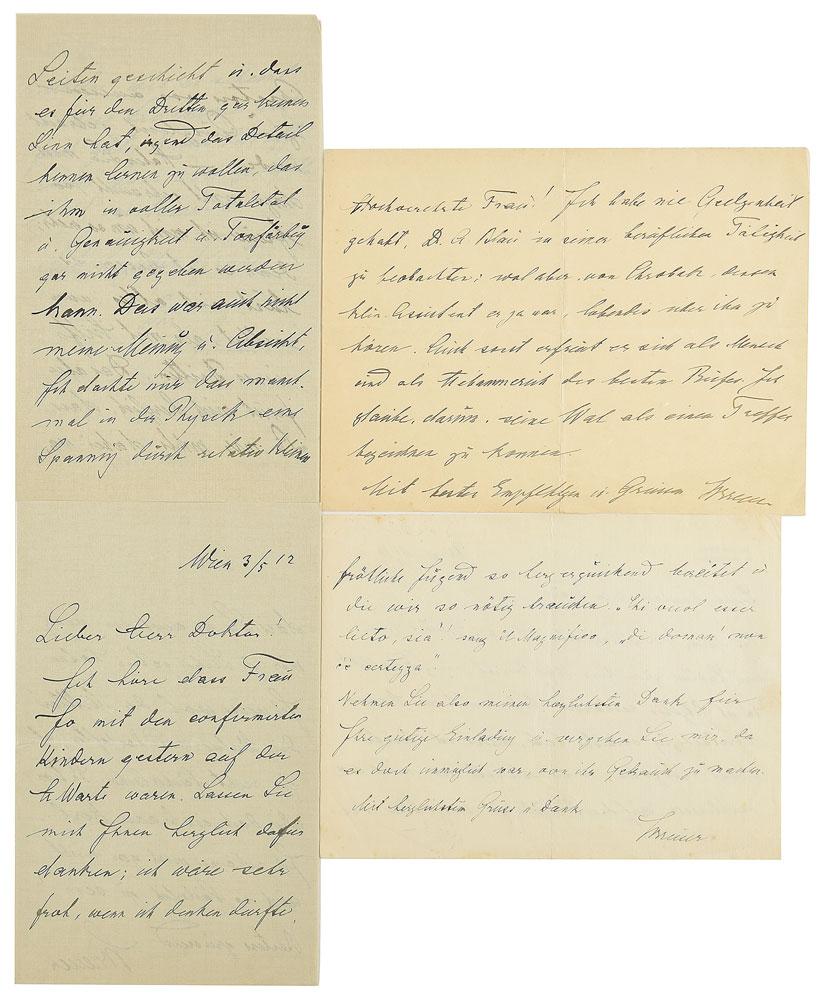 Seiten geschieht u. dass
es für den Dritten gar keinen
Sinn hat, irgend das Detail
kennen lernen zu wollen, das
ihm in voller Totalität
u. Genauigkeit u. Tonfärbg
gar nicht gegeben werden
kann. Das war auch nicht
meine Meinung u. Absicht,
Ich dachte nur dass manch-
mal in der Physik eine
Spannung durch relativ kleinen
Hochverehrte Frau! Ich habe nie Gelegenheit
gehabt, D. A Blau in seiner beruflichen Tätigkeit
zu beobachten; wol aber von Chrobak, dessen
klin. Assistent er ja war, lobendes über ihn zu
hören. Auch sonst erfreut er sich als Mensch
und als des besten Rufes. Ich
glaube, darum, seine Wal als einen Treffer
bezeichnen zu können.
Mit besten Empfehlgen u. Grüssen Breuer
Wien 3/5 12
Lieber Herr Doktor!
Ich höre dass Frau
Jo mit den confirmirten
Kindern gestern auf der
h Warte waren. Lassen Sie
mich Ihnen herzlich dafür
danken; ich wäre sehr
froh, wenn ich denken dürfte,
fröhliche Jugend so herzerquickend bereitet u
die wir so nötig brauchen. „Chi vuol esser
lieto, sia"! sang il Magnifico, „di doman' non
c'è certezza".
Nehmen Sie also meinen herzlichsten Dank für
Ihre gütige Einladung u. vergeben Sie mir, da
es doch unmöglich war, von ihr Gebrauch zu machen.
Mit herzlichstem Gruss u Dank
Breuer